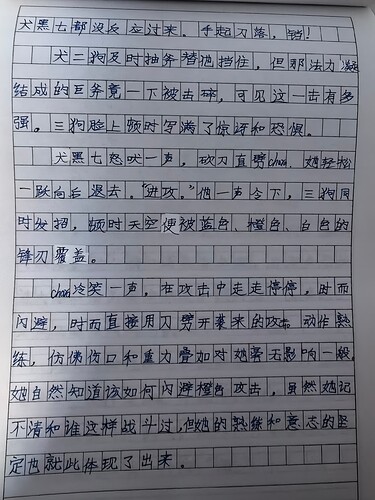 犬黑七都没反应过来。手起刀落，铛！
犬二狗及时抽斧替他挡住，但那法力凝
结成的巨斧竟一下被击碎，可见这一击有多
强。三狗脸上顿时写满了惊讶和恐惧。
犬黑七怒吠一声，砍刀直劈chara，她轻松
一跃向后退去。“进攻。”他一声令下，三狗同
时发招，顿时天空便被蓝色、橙色、白色的
锋刃覆盖。
冷笑一声，在攻击中走走停停，时而
闪避，时而直接用刀劈开袭来的攻击，动作熟
练，仿佛伤口和重力叠加对她毫无影响一般。
她自然知道该如何闪避橙色攻击，虽然她记
不清和谁这样战斗过，但她的熟练和意志的坚
定也就此体现了出来。